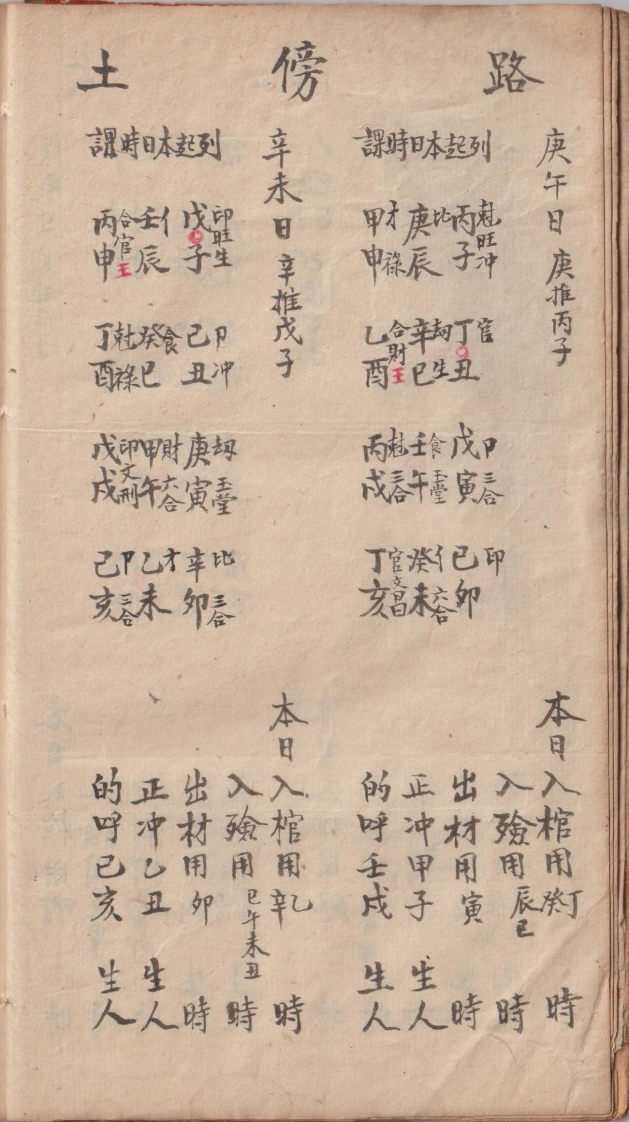 路傍土
庚午日 庚推丙子
列起本日時課
丙子 尅旺冲 丁丑 官 戊寅 卩三合 己卯 印
庚辰 比 辛巳 劫生 壬午 食玉堂 癸未 亻六合
甲申 才祿 乙酉 合財王 丙戌 尅三合 丁亥 官文昌
本日入棺用丁癸時
入殮用辰巳時
出材用寅時
正冲甲子生人
的呼壬戌生人
辛未日 辛推戊子
列起本日時課
戊子 印旺生 己丑 卩冲 庚寅 劫玉堂 辛卯 比三合
壬辰 亻 癸巳 食 甲午 財六合 乙未 才
丙申 合官王 丁酉 尅祿 戊戌 印文刑 己亥 卩三合
本日入棺用乙辛時
入殮用巳午未丑時
出材用卯時
正冲乙丑生人
的呼己亥生人